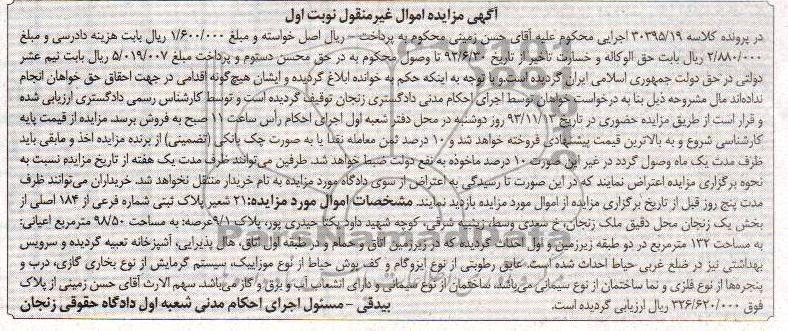 آگهی مزایده اموال غیرمنقول نوبت اول
در پرونده کلاسه ۳۰۳۹۵/۱۹ اجرایی محکوم علیه آقای حسن زمینی محکوم به پرداخت - ریال اصل خواسته و مبلغ ۱/۶۰۰/۰۰۰ ریال بابت هزینه دادرسی و مبلغ
۲/۸۸۰/۰۰۰ ریال بابت حق الوکاله و خسارت تأخیر از تاریخ ۹۲/۶/۲۰ تا وصول محکوم به در حق محسن دستوم و پرداخت مبلغ ۵/۰۱۹/۰۰۷ ریال بابت نیم عشر
دولتی در حق دولت جمهوری اسلامی ایران گردیده است. و با توجه به اینکه حکم به خوانده ابلاغ گردیده و ایشان هیچ‌گونه اقدامی در جهت احقاق حق خواهان انجام
نداده‌اند مال مشروحه ذیل بنا به درخواست خواهان توسط اجرای احکام مدنی دادگستری زنجان توقیف گردیده است و توسط کارشناس رسمی دادگستری ارزیابی شده
و قرار است از طریق مزایده حضوری در تاریخ ۹۳/۱۱/۱۳ روز دوشنبه در محل دفتر شعبه اول اجرای احکام رأس ساعت ۱۱ صبح به فروش برسد. مزایده از قیمت پایه
کارشناسی شروع و به بالاترین قیمت پیشنهادی فروخته خواهد شد و ۱۰ درصد ثمن معامله نقداً یا به صورت چک بانکی (تضمینی) از برنده مزایده اخذ و مابقی باید
ظرف مدت یک ماه وصول گردد در غیر این صورت ۱۰ درصد ماخوذه به نفع دولت ضبط خواهد شد. طرفین می‌توانند ظرف مدت یک هفته از تاریخ مزایده نسبت به
نحوه برگزاری مزایده اعتراض نمایند که در این صورت تا رسیدگی به اعتراض از سوی دادگاه مورد مزایده به نام خریدار منتقل نخواهد شد. خریداران می‌توانند ظرف
مدت پنج روز قبل از تاریخ برگزاری مزایده از اموال مورد مزایده بازدید نمایند. مشخصات اموال مورد مزایده: ۲۱ شعیر پلاک ثبتی شماره فرعی از ۱۸۴ اصلی از
بخش یک زنجان محل دقیق ملک زنجان، خ سعدی وسط، زینبیه شرقی، کوچه شهید داود یکتا حیدری پور، پلاک ۹/۱ عرصه: به مساحت ۹۸/۵۰ مترمربع اعیانی:
به مساحت ۱۳۲ مترمربع در دو طبقه زیرزمین و اول احداث گردیده که در زیرزمین اتاق و حمام و در طبقه اول اتاق، هال پذیرایی، آشپزخانه تعبیه گردیده و سرویس
بهداشتی نیز در ضلع غربی حیاط احداث شده است. عایق رطوبتی از نوع ایزوگام و کف پوش حیاط از نوع موزاییک، سیستم گرمایش از نوع بخاری گازی، درب و
پنجره‌ها از نوع فلزی و نما ساختمان از نوع سیمانی می‌باشد. ساختمان از نوع سیمانی و دارای انشعاب آب و برق و گاز می‌باشد. سهم الارث آقای حسن زمینی از پلاک
فوق ۳۲۶/۶۲۰/۰۰۰ ریال ارزیابی گردیده است. بیدقی - مسئول اجرای احکام مدنی شعبه اول دادگاه حقوقی زنجان